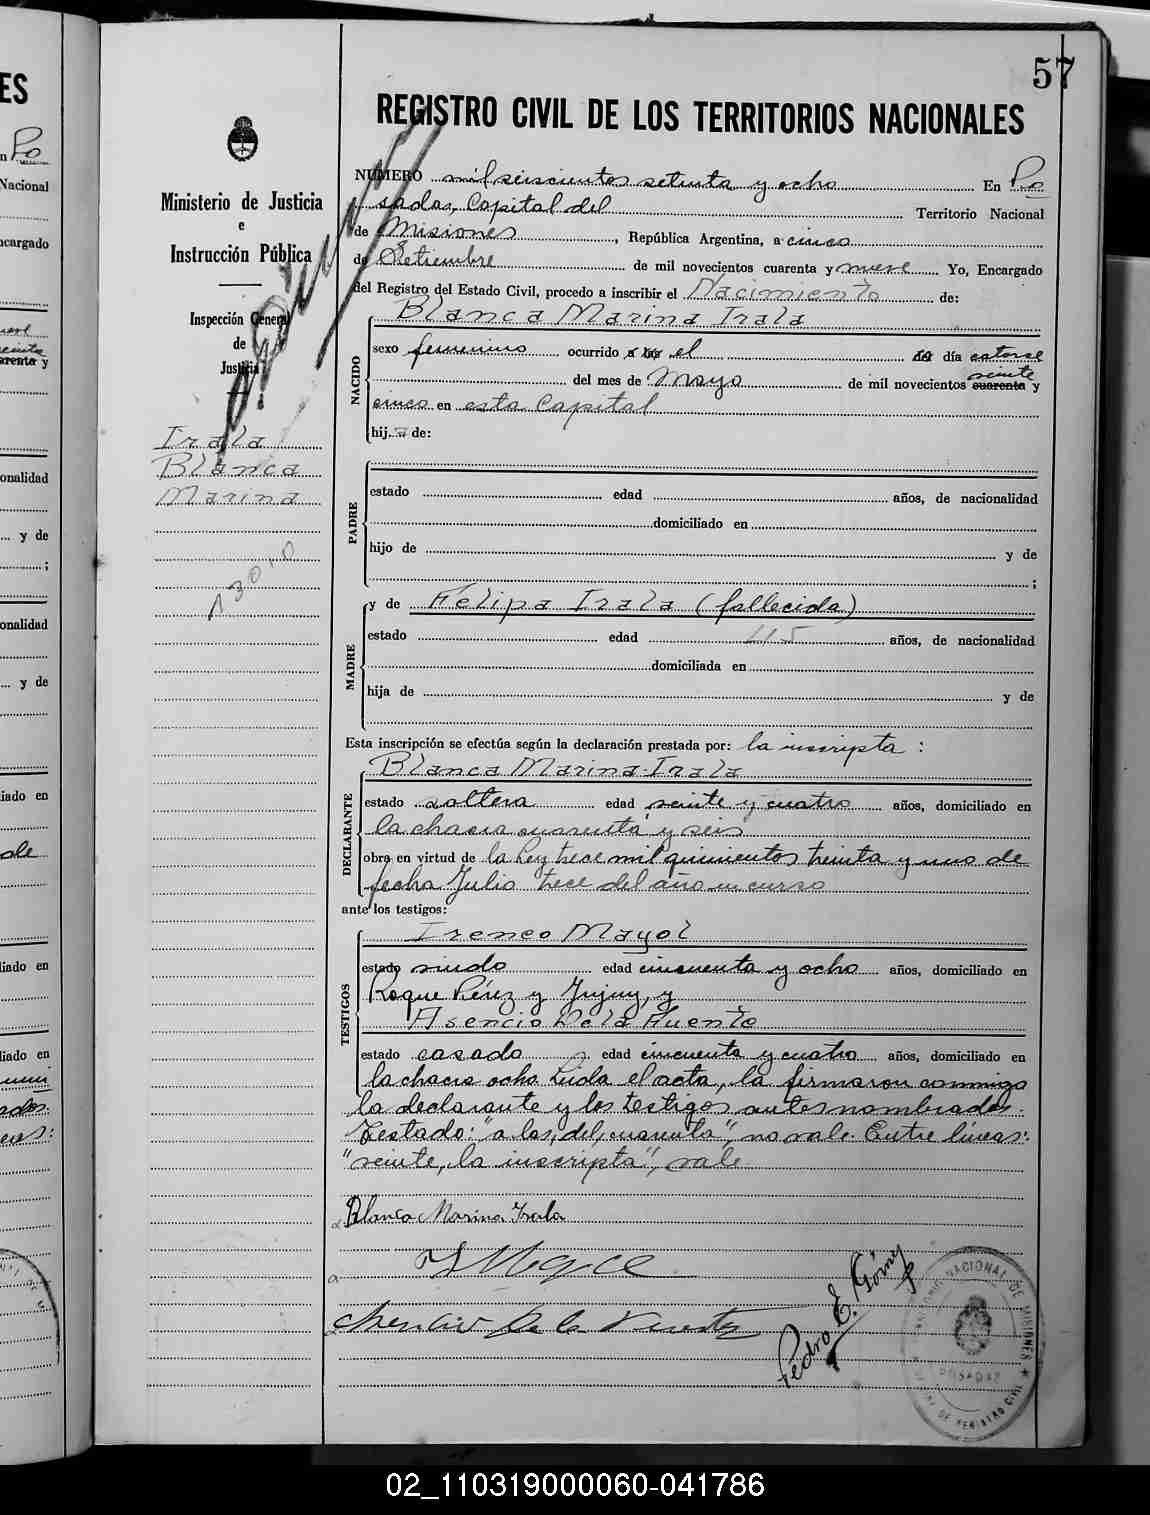 57
REGISTRO CIVIL DE LOS TERRITORIOS NACIONALES
Ministerio de Justicia
e
Instrucción Pública
Inspección General
de
Justicia
Irala
Blanca
Marina
NUMERO mil seiscientos setenta y ocho En Po
sadas, Capital del Territorio Nacional
de Misiones, República Argentina, a cinco
de Setiembre de mil novecientos cuarenta y nueve Yo, Encargado
del Registro del Estado Civil, procedo a inscribir el Nacimiento de:
NACIDO
Blanca Marina Irala
sexo femenino ocurrido a las el del día catorce
veinte
del mes de Mayo de mil novecientos cuarenta y
cinco en esta Capital
hija de:
PADRE
estado edad años, de nacionalidad
domiciliado en
hijo de y de
;
MADRE
y de Felipa Irala (fallecida)
estado edad años, de nacionalidad
domiciliada en
hija de y de
Esta inscripción se efectúa según la declaración prestada por: la inscripta:
DECLARANTE
Blanca Marina Irala
estado soltera edad veinte y cuatro años, domiciliado en
la chacra cuarenta y seis
obra en virtud de la Ley trece mil quinientos treinta y uno de
fecha Julio trece del año en curso
ante los testigos:
TESTIGOS
Ireneo Mayol
estado viudo edad cincuenta y ocho años, domiciliado en
Roque Pérez y Jujuy, y
Asencio De la Fuente
estado casado edad cincuenta y cuatro años, domiciliado en
la chacra ocho. Leída el acta, la firmaron conmigo
la declarante y los testigos antes nombrados.
Testado: "a las, del, cuarenta", no vale. Entre líneas:
"veinte, la inscripta", vale.
Blanca Marina Irala
Pedro E. Gómez
NACIONAL DE MISIONES
POSADAS
DE REGISTRO CIVIL
02_110319000060-041786